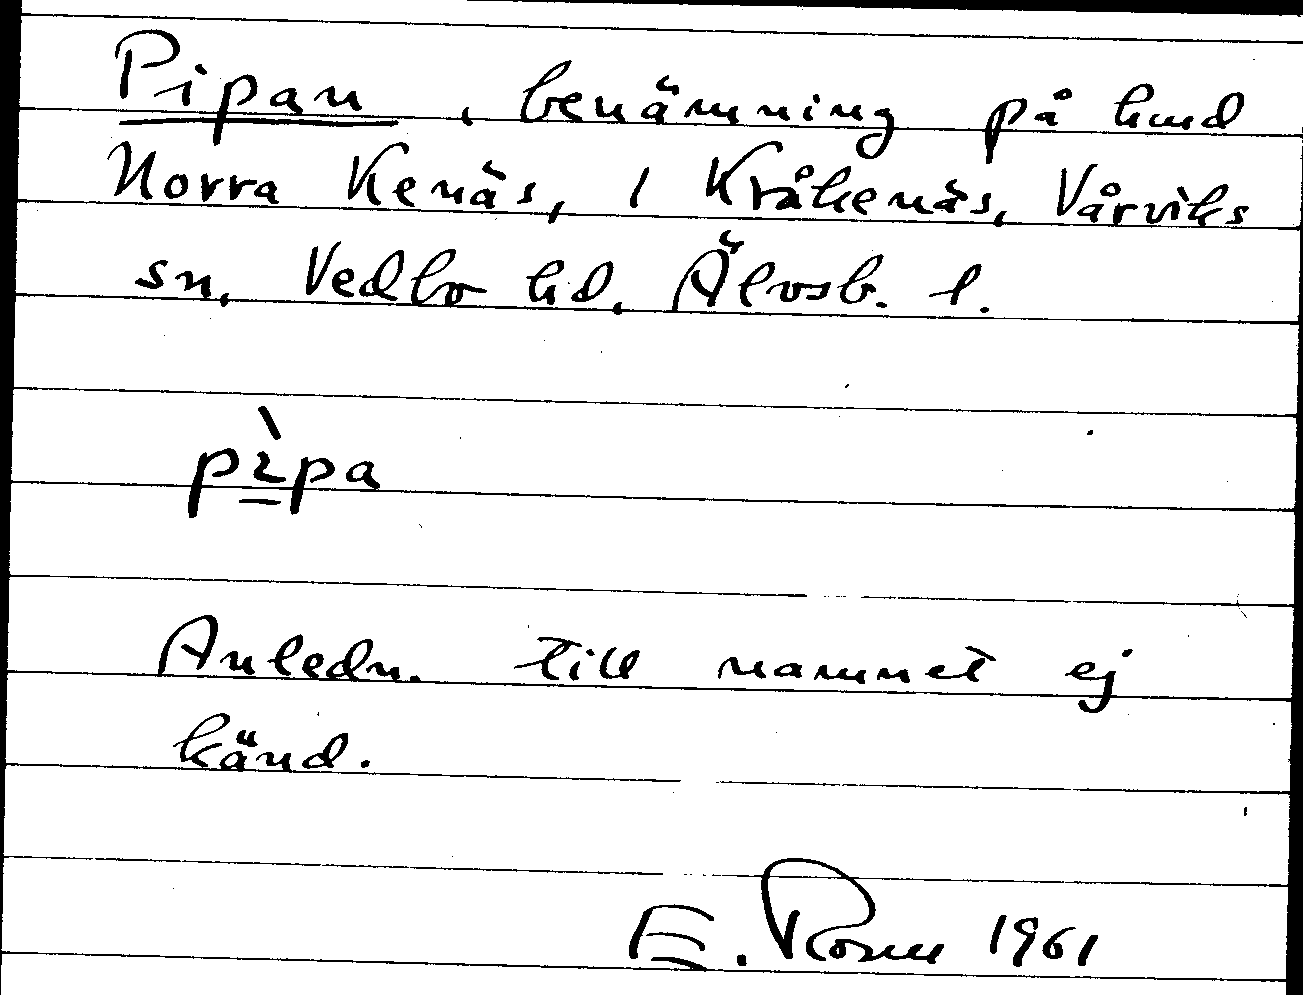 Pipan, benämning på hmd
Norra Kenäs, 1 Kråkenäs, Vårviks
sn, Vedbo hd. Älvsb. l.
pìpa
Anledn. till namnet ej
känd.
E. Rosen 1961